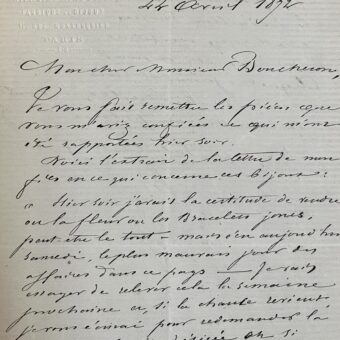 Avril 1892
Mon cher Monsieur Boucheron,
Je vous fait remettre les pièces que
vous m'aviez confiées et qui m'ont
été rapportées hier soir.
Voici l'extrait de la lettre de mon
fils en ce qui concerne ces bijoux:
« Hier soir j'avais la certitude de vendre
ou la fleur ou les Bracelets joncs,
peut-être le tout — mais c'en aujourd'hui
samedi, le plus mauvais jour des
affaires dans ce pays — Je vais
essayer de relever cela la semaine
prochaine et, si la chance revient,
je vous pour redemander la
si